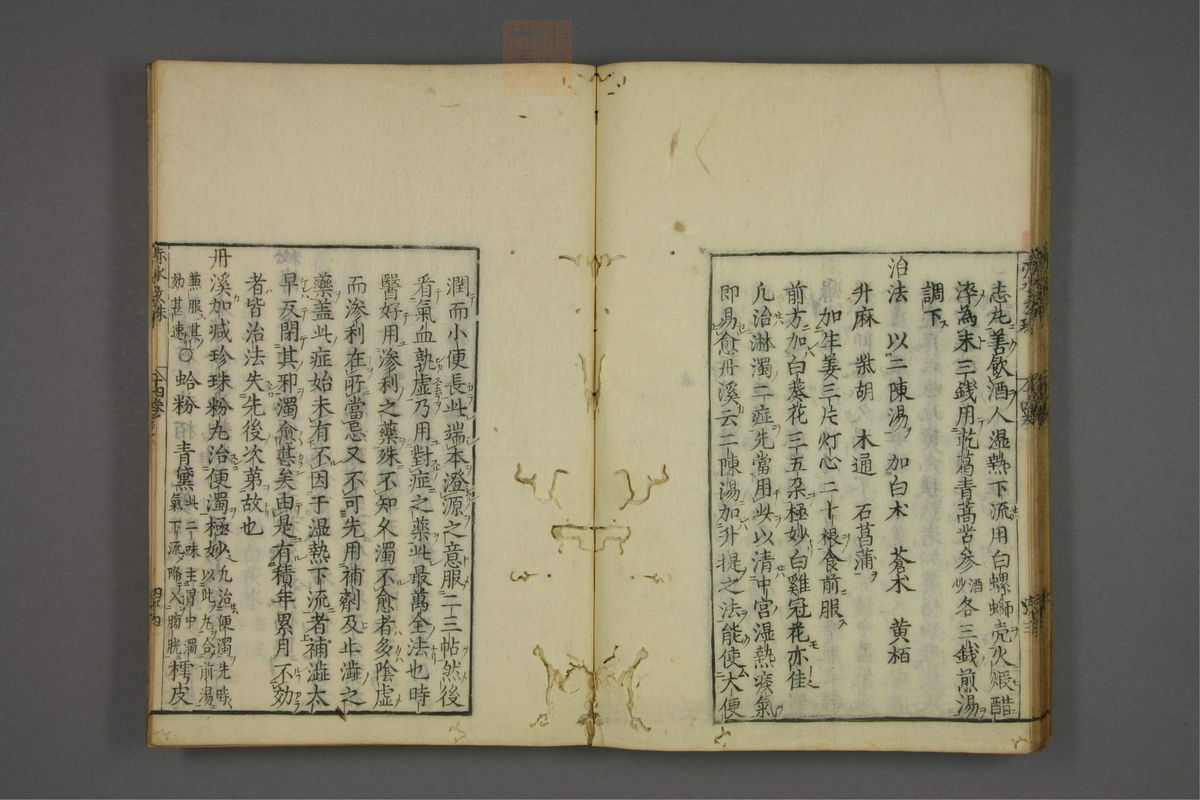 志凡善飲酒人湿熱下流用白螺螄壳火煅醋
淬為末三錢用乾葛青蒿苦参酒炒各三錢煎湯
調下
治法 以二陳湯加白朮 蒼朮 黄栢
升麻 柴胡 木通 石菖蒲
加生姜三片灯心二十根食前服
前方加白葵花三五朶極妙白雞冠花亦佳
凡治淋濁二症先當用此以清中宮湿熱痰氣
即易愈丹溪云二陳湯加升提之法能使大便
潤而小便長此端本澄源之意服二三帖然後
看氣血孰虚乃用對症之藥此最萬全法也時
醫好用滲利之藥殊不知久濁不愈者多陰虚
而滲利在所當忌又不可先用補劑及止澁之
藥盖此症始未有不因于湿熱下流者補澁太
早反閉其邪濁愈甚矣由是有積年累月不効
者皆治法失先後次第故也
丹溪加减珍珠粉丸治便濁極妙以此丸合前湯
兼服其
効甚速○蛤粉 青黛此二味主胃中濁
氣下流降入膀胱樗皮
赤水玄珠